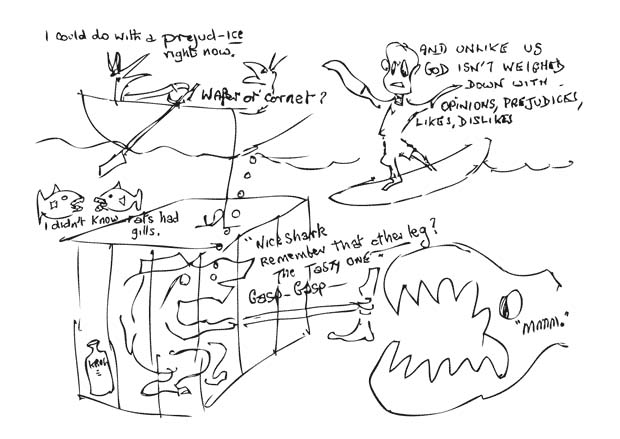 I could do with a prejud-ice
right now.
Wafer or cornet?
AND UNLIKE US
GOD ISN'T WEIGHED
DOWN WITH
OPINIONS, PREJUDICES,
LIKES, DISLIKES
I didn't know rats had
gills.
"Nick Shark
remember that other leg?
The Tasty ONE"
Gasp-Gasp-
"MMM."